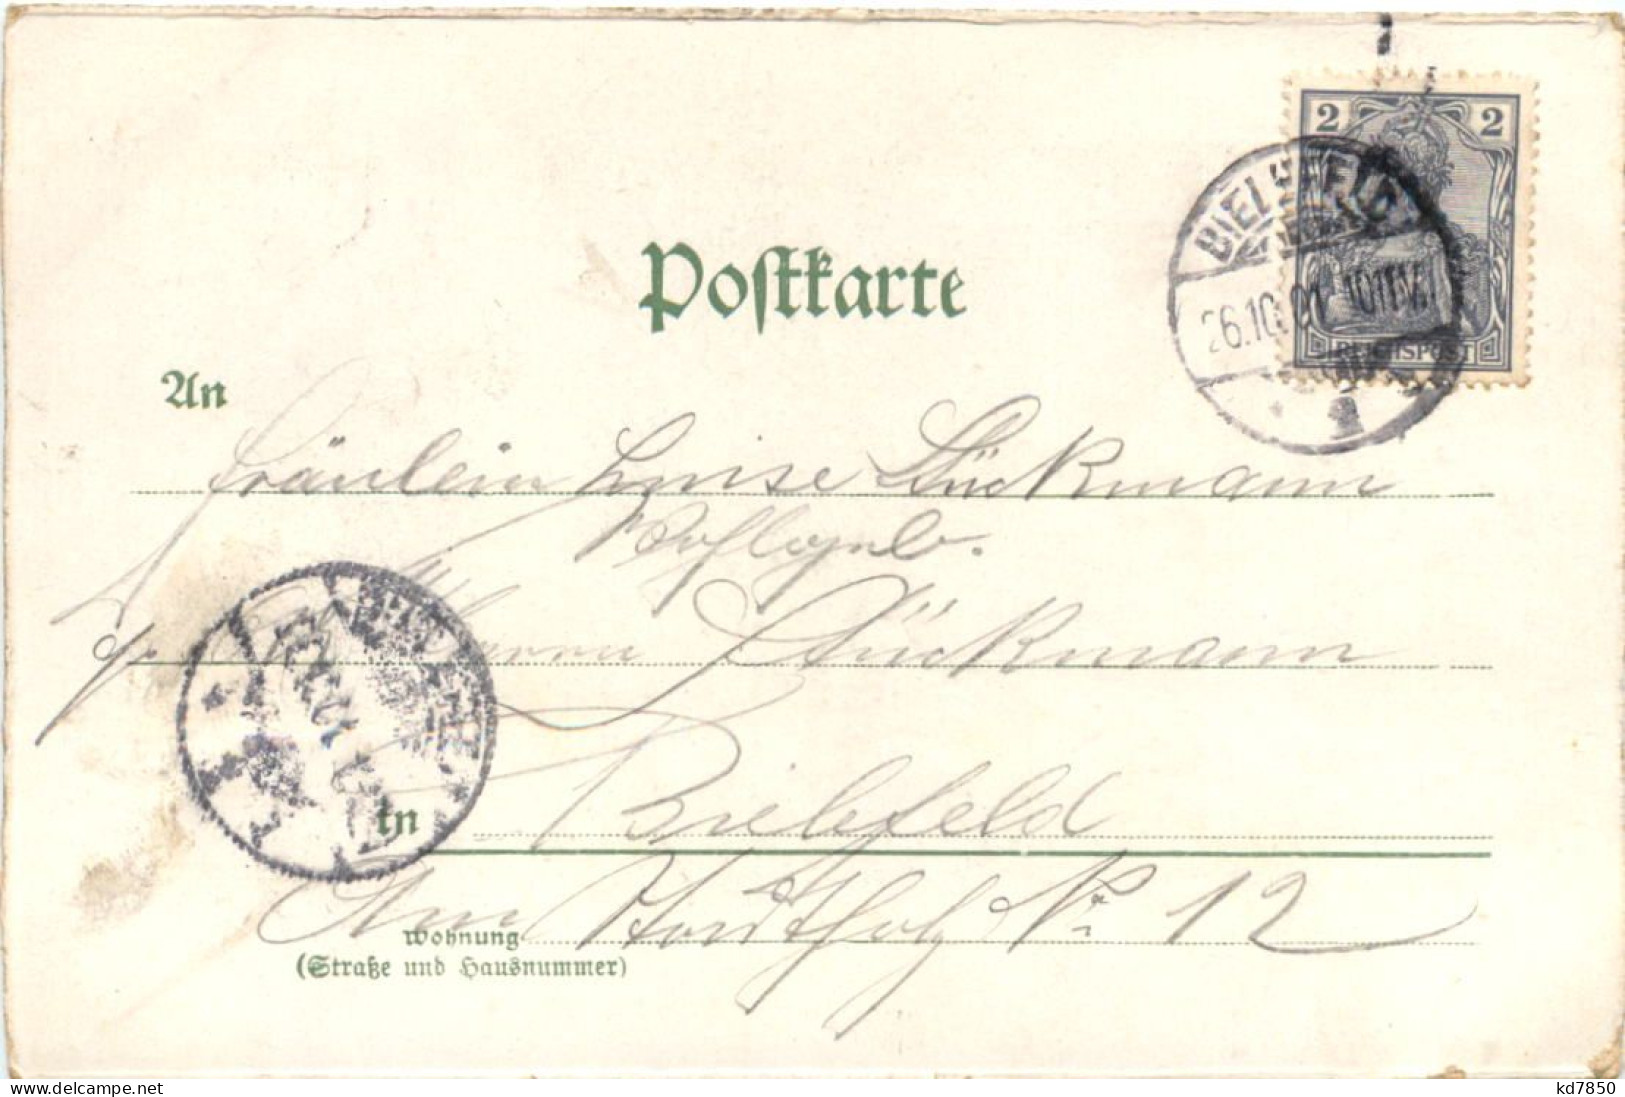 2 2
BIELEFELD
26.10.01 10-11V.
REICHSPOST
Postkarte
An
Fräulein Luise Stückmann
Wohlgeb.
Herrn Stückmann
in Bielefeld
Am Nº 12
Wohnung
(Straße und Hausnummer)
www.delcampe.net
kd7850